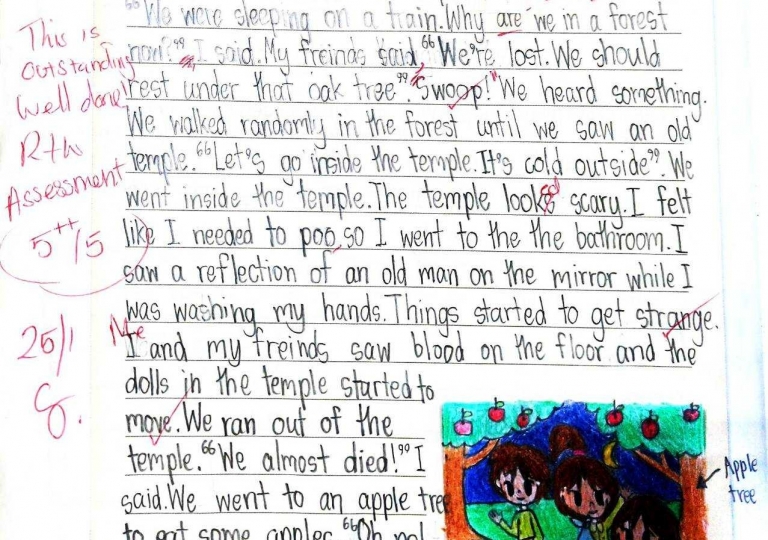 "We were sleeping on a train. Why are we in a forest
now?", I said. My freinds said, "We're lost. We should
rest under that oak tree". "Swoop!" We heard something.
We walked randomly in the forest until we saw an old
temple. "Let's go inside the temple. It's cold outside". We
went inside the temple. The temple looked scary. I felt
like I needed to poo, so I went to the the bathroom. I
saw a reflection of an old man on the mirror while I
was washing my hands. Things started to get strange.
Me
I and my freinds saw blood on the floor and the
dolls in the temple started to
move. We ran out of the
temple. "We almost died!" I
said. We went to an apple tree
to eat some apples. "Oh no!
This is
outstanding
Well done!
R+W
Assessment
5++/5
25/1
Apple
tree